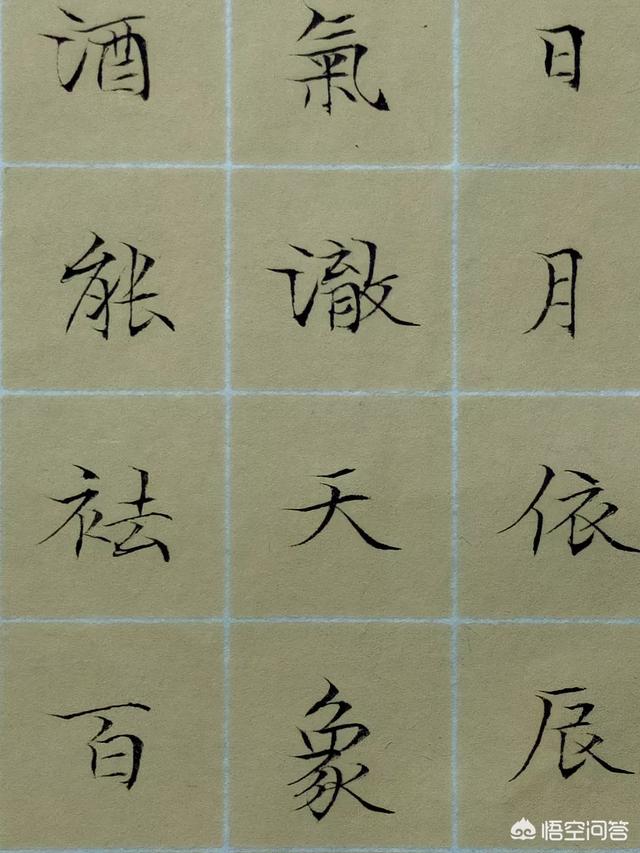 日月依辰
氣澈天象
酒能祛百
悟空问答